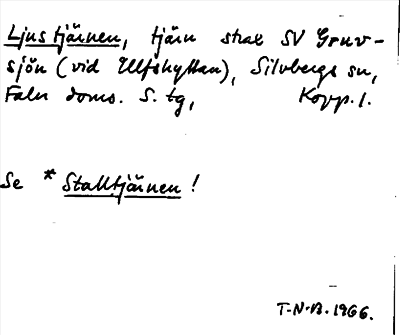 Ljustjärnen, tjärn strax SV Gruv-
sjön (vid Ulfshyttan), Silvbergs sn,
Falu doms. S. tg, Kopp. l.
Se * Stalltjärnen !
T-N-B. 1966.